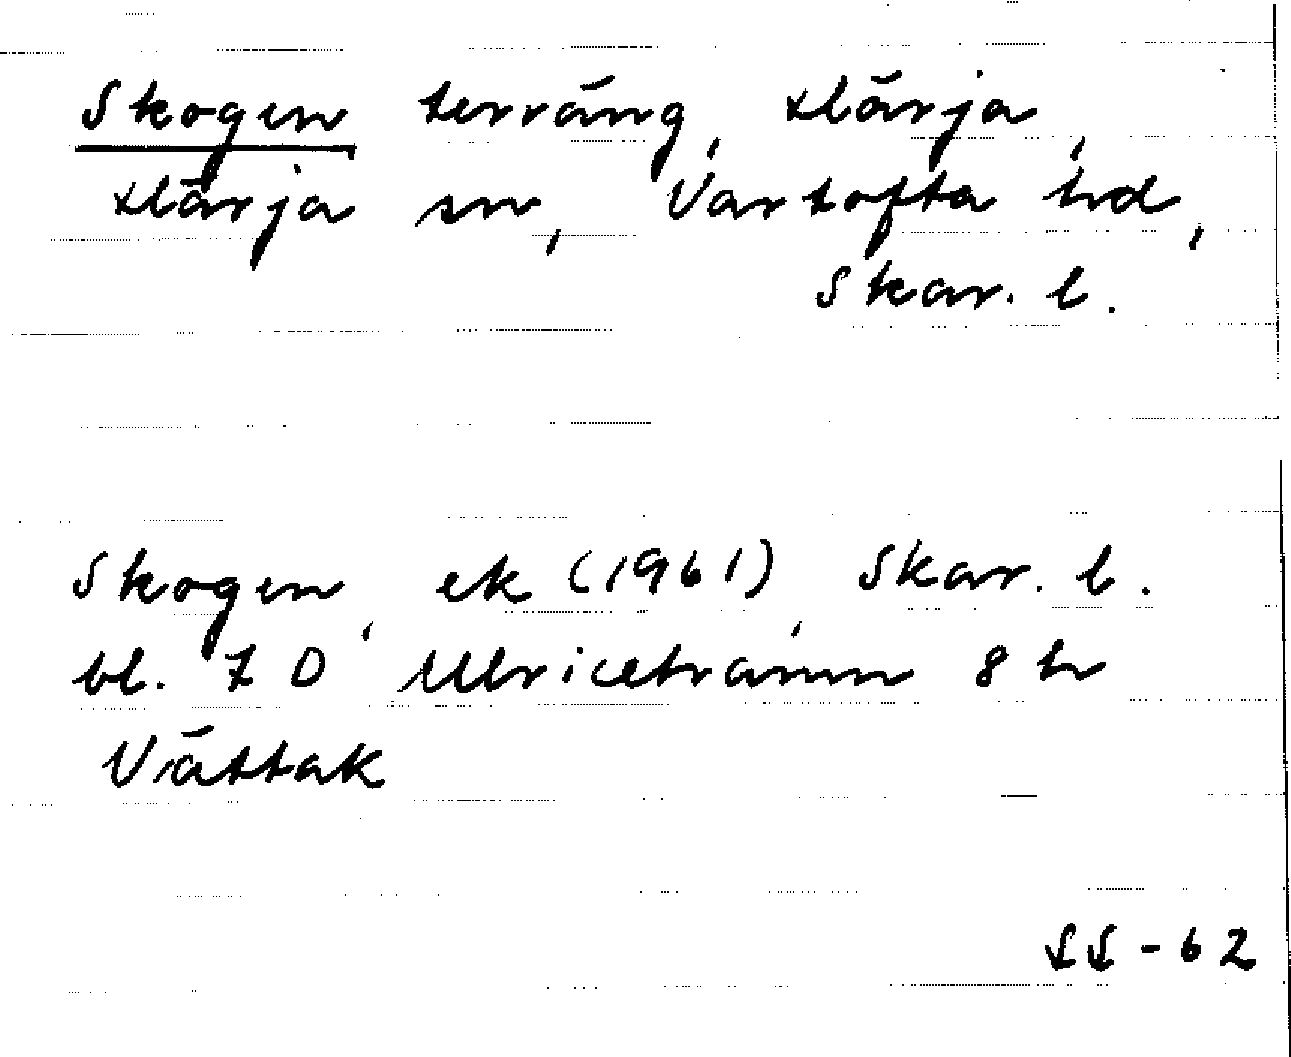 Skogen terräng, Härja,
Härja sn, Vartofta hd,
Skar. l.
Skogen, ek (1961), Skar. l.
bl. 7 D Ulricehamn 8 h
Vättak
SS - 62